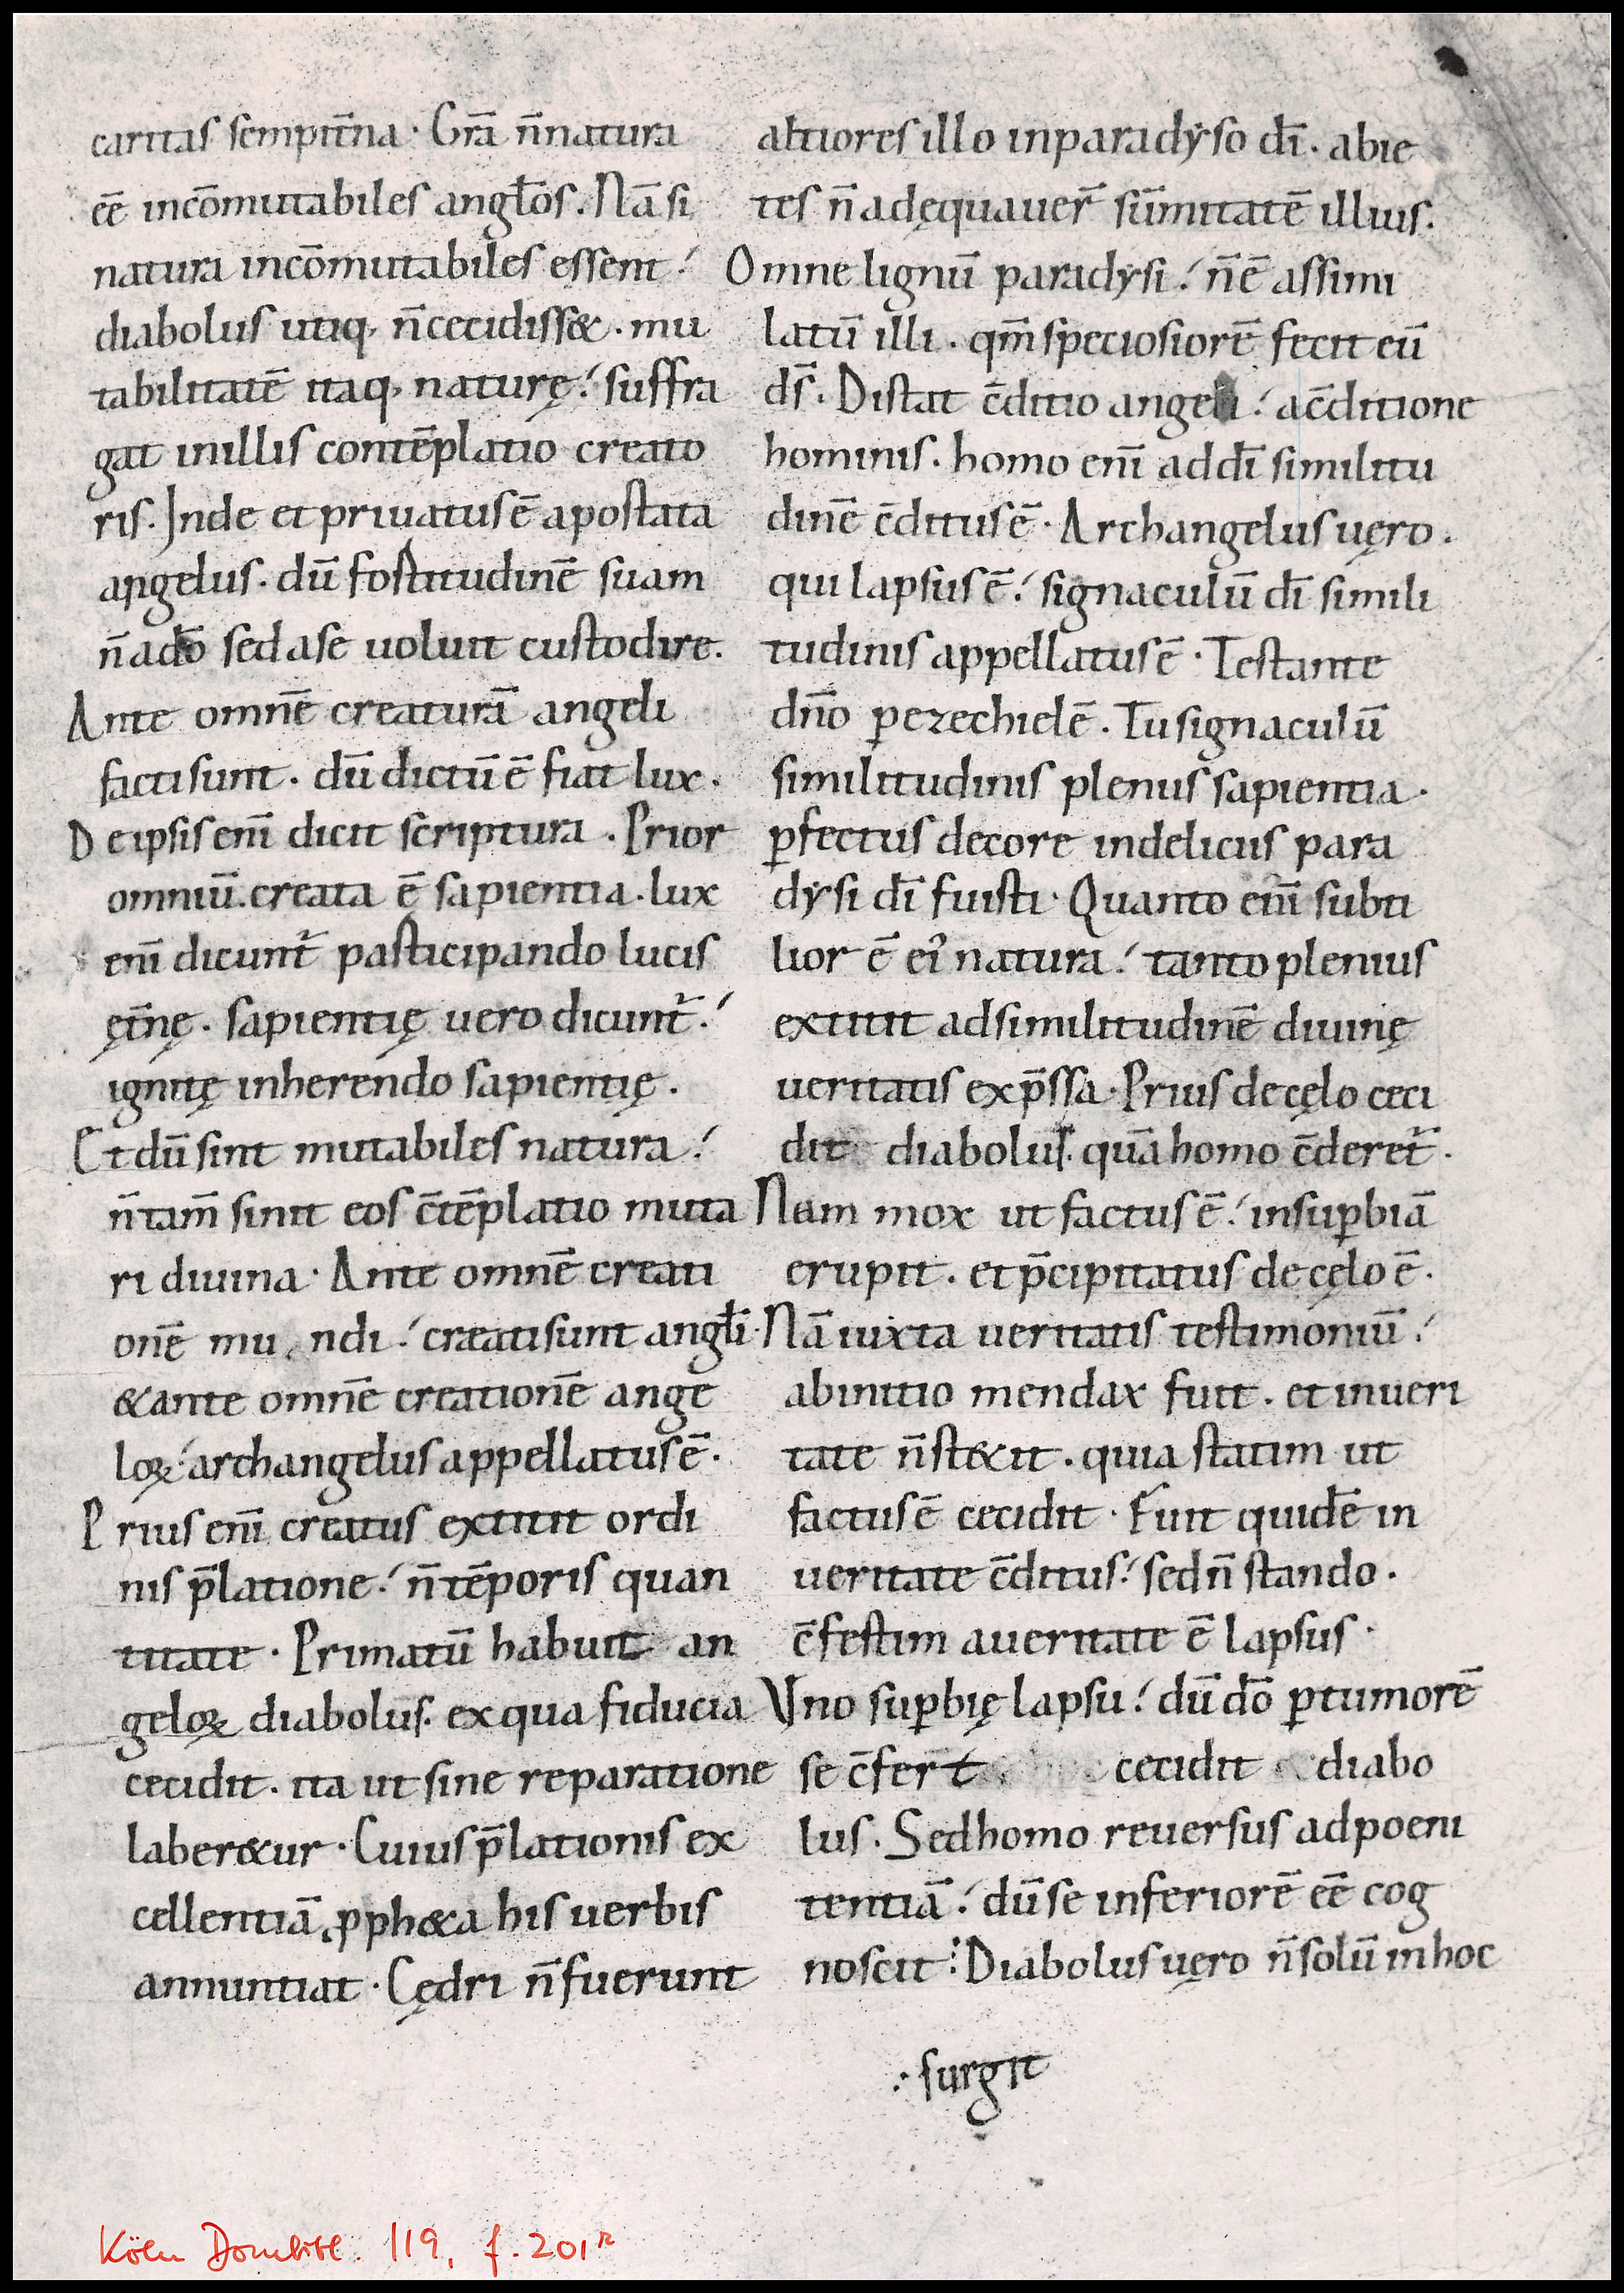 caritas sempit̄na · Gr̄a n̄ natura
eē̄ incōmutabiles angl̄os . Nā si
natura incōmutabiles essent ؛
diabolus utiq; n̄ cecidiss& . mu
tabilitatē itaq; naturę ؛ suffra
gat in illis contēplatio creato
ris . Inde et priuatus ē apostata
angelus . dū fostitudinē suam
n̄ ad dō sed a se uoluit custodire .
Ante omnē creaturā angeli
facti sunt . dū dictū ē fiat lux .
De ipsis eni̅ dicit scriptura . Prior
omniū . creata ē sapientia . lux
eni̅ dicunt᷑ pasticipando lucis
ęt̄nę . sapientię uero dicunt᷑ ؛
ignitę inherendo sapientię .
Et dū sint mutabiles natura ؛
n̄ tam̄ sinit eos c̄tēplatio muta
ri diuina · Ante omnē creati
onē mu ndi ؛ creati sunt angl̄i ·
& ante omnē creationē ange
loꝝ ؛ archangelus appellatus ē .
Prius eni̅ creatus extitit ordi
nis p̄latione ؛ n̄ tēporis quan
titate · Primatū habuit an
geloꝝ diabolus . ex qua fiducia
cecidit . ita ut sine reparatione
laber&ur · Cuius p̄lationis ex
cellentiā ꝓph&a his uerbis
annuntiat · Cędri n̄ fuerunt
altiores illo in paradẏso dī . abie
tes n̄ adęquauer̄ sūmitatē illius .
Omne lignū paradẏsi ؛ n̄ ē assimi
latū illi . qm̄ speciosiorē fecit eū
ds̄ . Distat c̄ditio angeli ؛ a c̄ditione
hominis . homo eni̅ ad dī similitu
dinē c̄ditus ē · Archangelus uęro .
qui lapsus ē ؛ signaculū dī simili
tudinis appellatus ē · Testante
dn̄o ꝑ ezechielē . Tu signaculū
similitudinis plenus sapientia .
ꝑfectus decore in deliciis para
dẏsi dī fuisti · Quanto eni̅ subti
lior ē eiꝰ natura ؛ tanto plenius
extitit ad similitudinē diuinę
ueritatis exp̄ssa · Prius de cęlo ceci
dit diabolus . quā homo c̄deret᷑ .
Nam mox ut factus ē ؛ in suꝑbiā
erupit . et p̄cipitatus de cęlo ē .
Nā iuxta ueritatis testimoniū ؛
ab initio mendax fuit . et in ueri
tate n̄ st&it . quia statim ut
factus ē cecidit · Fuit quidē in
ueritate c̄ditus ؛ sed n̄ stando .
c̄festim a ueritate ē lapsus ·
Vno suꝑbię lapsu ؛ dū dō ꝑ tumorē
se c̄fert cecidit diabo
lus . Sed homo reuersus ad poeni
tentiā ؛ dū se inferiorē eē̄ cog
noscit ⁝ Diabolus uęro n̄ solū in hoc
∴ surgit
Köln Dombibl. 119, f. 201ʳ